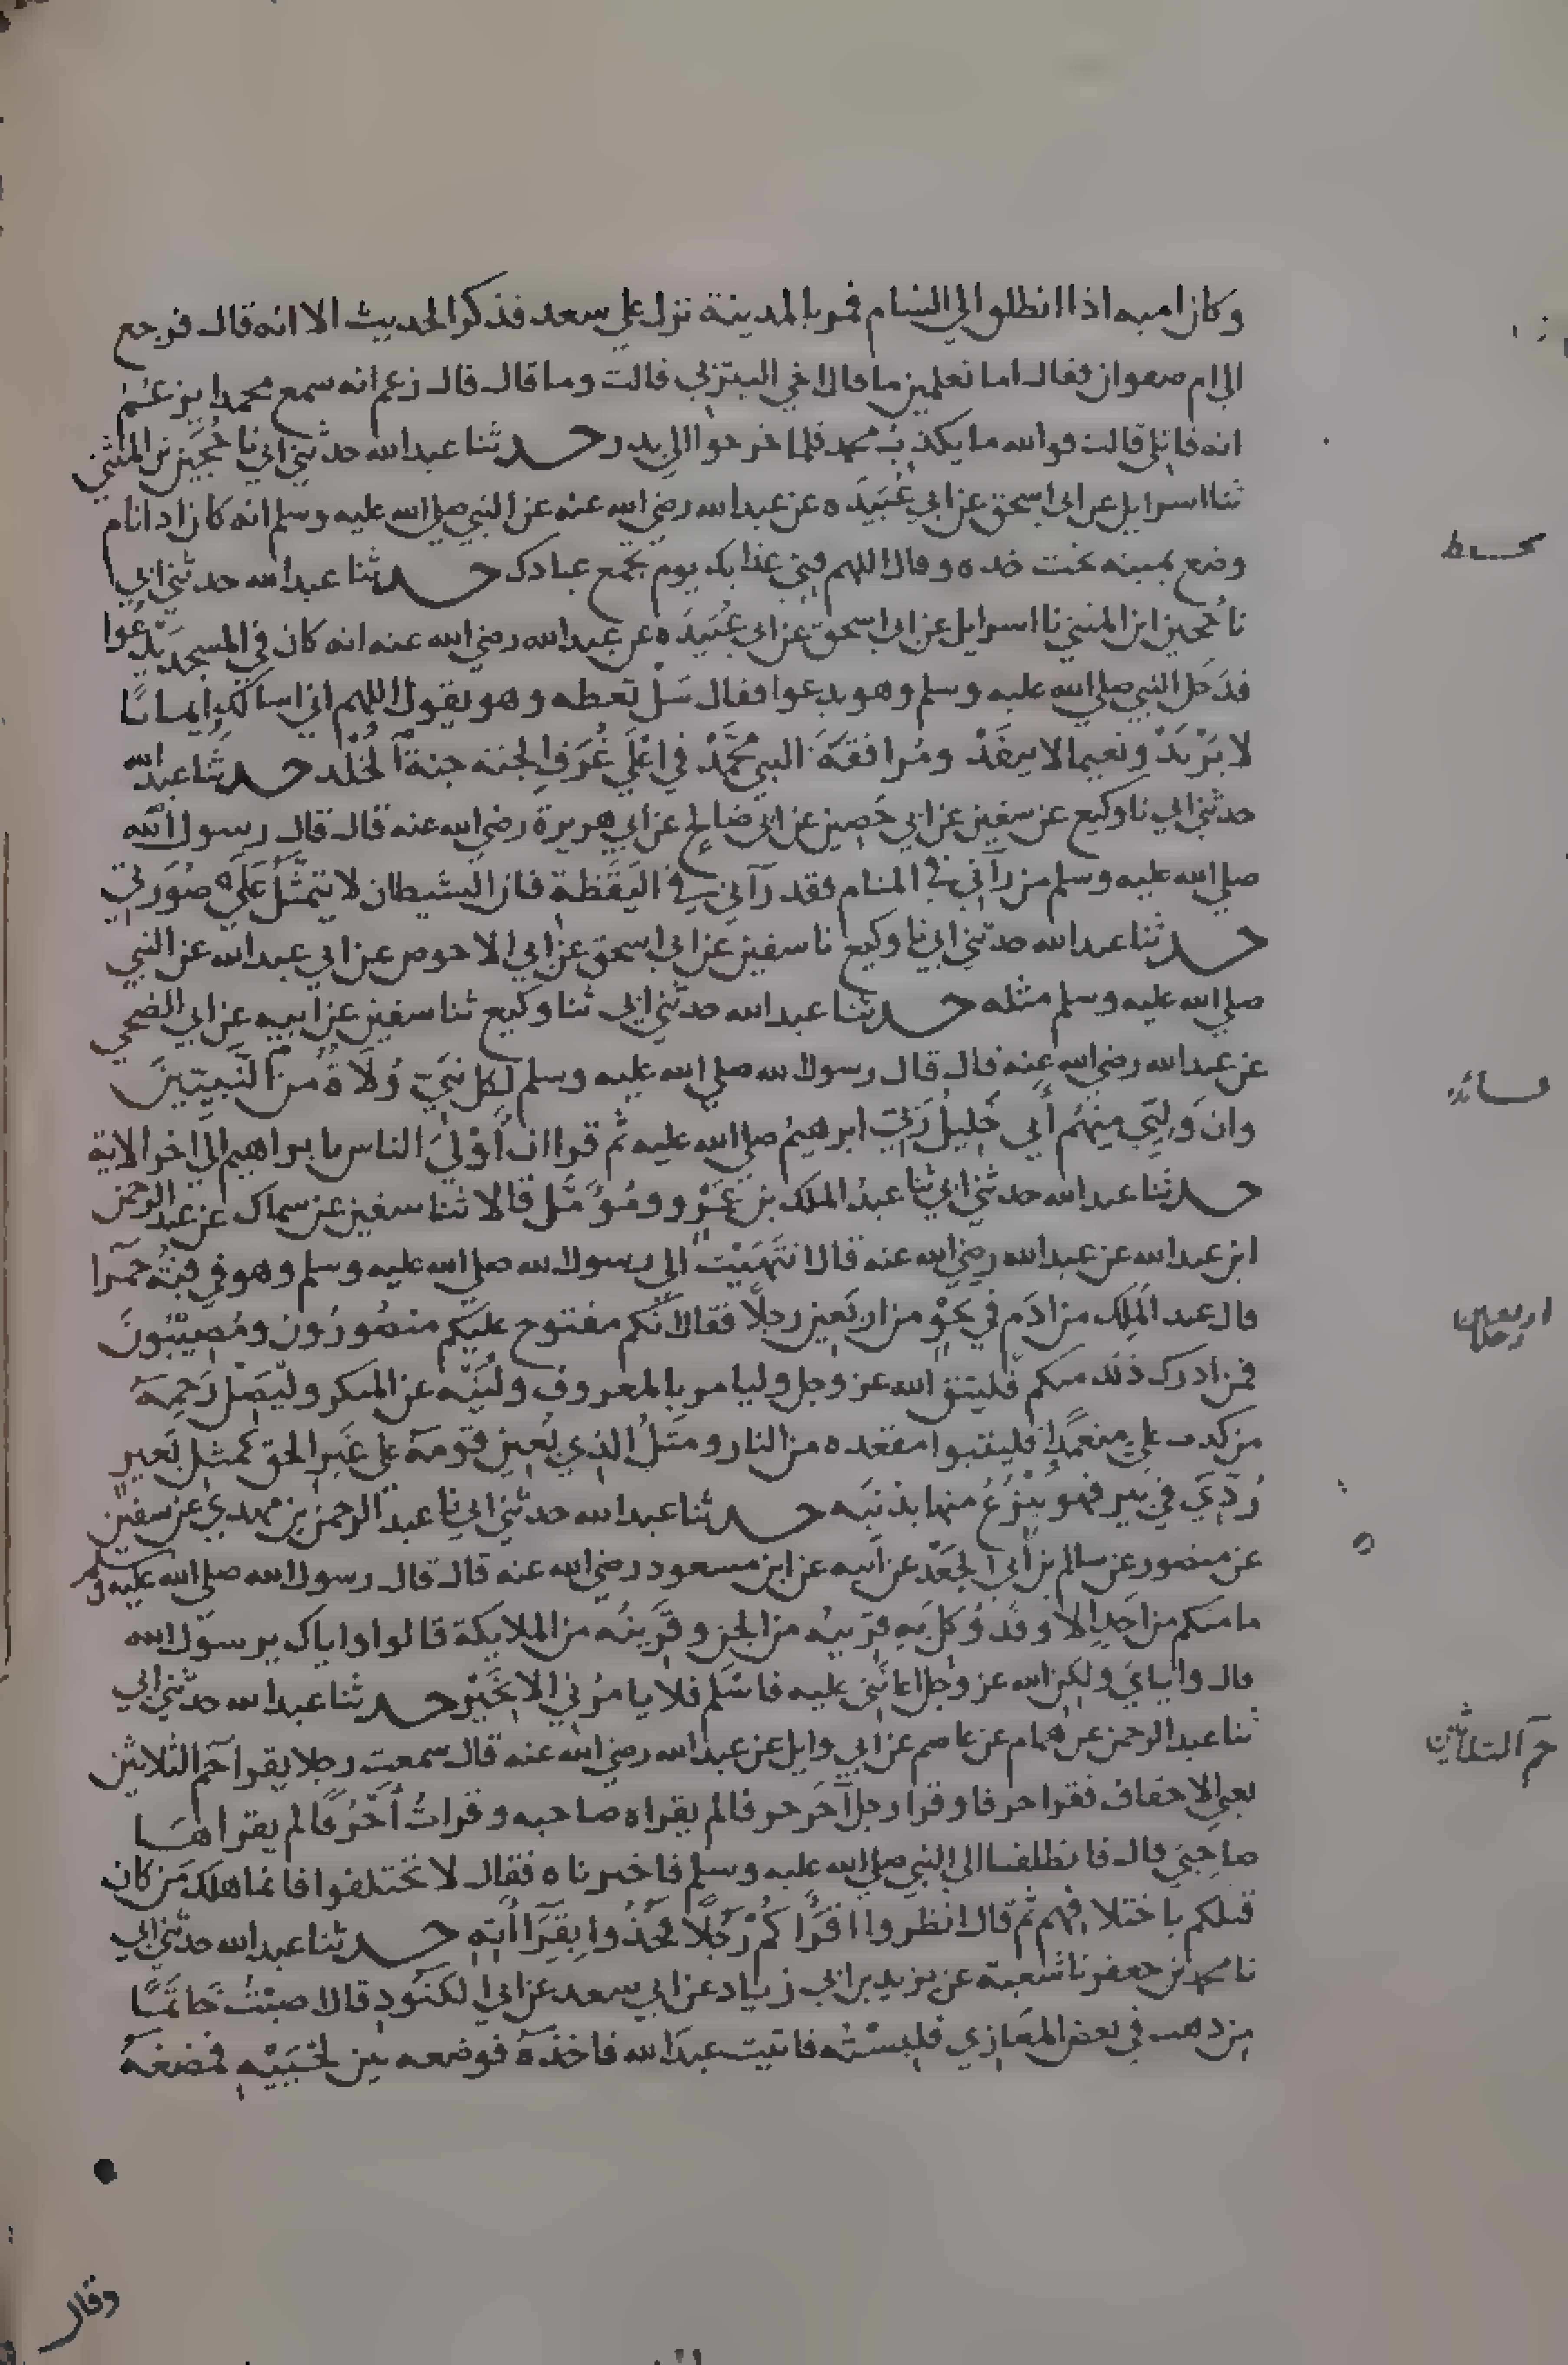 وكان اميه اذا انطلق الى الشام فمر بالمدينة نزل على سعد فذكر الحديث الا انه قال فرجع
الى ام صفوان فقال اما تعلمين ما قال اخي اليثربي قالت وما قال قال زعم انه سمع محمدا يزعم
انه قاتلي قالت فوالله ما يكذب محمد فلما خرجوا الى بدر حدثنا عبد الله حدثني ابي نا حجين بن المثنى
ثنا اسرايل عن ابي اسحق عن ابي عُبَيدَه عن عبد الله رضي الله عنه عن النبي صلى الله عليه وسلم انه كان اذا نام
وضع يمينه تحت خده وقال اللهم قني عذابك يوم تجمع عبادك حدثنا عبد الله حدثني ابي
نا حُجين ابن المثنى نا اسرايل عن ابي اسحق عن ابي عُبَيدَه عن عبد الله رضي الله عنه انه كان في المسجد يَدْعُوا
فدَخل النبي صلى الله عليه وسلم وهو يدعوا فقال سَلْ تعطه وهو يقول اللهم اني اسالك ايمانًا
لا يَرْتَدْ ونعيما لا ينفَدْ ومُرافقَةَ النبي محمَّدْ في اعْلَى غُرَفِ الجنه جنة الخُلْد حدثنا عبد الله
حدثني ابي نا وكيع عن سفين عن ابي حَصِين عن ابي صَالح عن ابي هريرة رضي الله عنه قال قال رسول الله
صلى الله عليه وسلم من رآني في المنام فقد رآني في اليَقَظة فان الشيطان لا يتمثَّلُ عَلَى صُوَرتي
حدثنا عبد الله حدثني ابي نا وكيع نا سفين عن ابي اسحق عن ابي الاحوص عن ابي عبد الله عن النبي
صلى الله عليه وسلم مثله حدثنا عبد الله حدثني ابي ثنا وكيع ثنا سفين عن ابيه عن ابي الضحى
عن عبد الله رضي الله عنه قال قال رسول الله صلى الله عليه وسلم لكل نبيّ وُلَاةٌ من النَّبيّينَ
وان وَليّي منهُم أبي خَليلُ رَبّي ابرهيمُ صلى الله عليه ثم قرا ان أوْلَى الناس بابراهيم الى اخر الاية
حدثنا عبد الله حدثني ابي ثنا عبدُ الملك بن عَمْرو ومُؤَمَّل قالا ثنا سفين عن سماك عن عبد الرحمن
ابن عبد الله عن عبد الله رضي الله عنه قال انتَهَيْت الى رسول الله صلى الله عليه وسلم وهو في قبّة حمرآ
قال عبد المَلِك من ادَم في نحْوٍ من اربَعين رجلًا فقال انكم مفتوح عليكم منصُورُون ومُصِيبُونَ
فمن ادرك ذلك منكم فليتق الله عز وجل وليامر بالمعروف وليَنْه عن المنكر وليَصِلْ رَحِمهُ
من كذب علي متعمدًا فليتبوا مقعده من النار ومَثَلُ الذي يُعِين قومَهُ على غَير الحق كمثل بَعير
رُدّيَ في بير فهو يَنْزعُ منها بذنَبه حدثنا عبد الله حدثني ابي نا عبد الرحمن بن مهدي عن سفين
عن منصور عن سالم بن أبي الجَعْد عن ابيه عن ابن مسعود رضي الله عنه قال قال رسول الله صلى الله عليه وسلم
ما منكم من احَدٍ الا وقد وُكلَ به قرينه من الجن وقَرِينُه من الملايكة قالوا واياك يرسول الله
قال وايايَ ولكن الله عز وجل اعانَني عليه فاسْلَم فلا يامرُني الا بخَيْر حدثنا عبد الله حدثني ابي
ثنا عبد الرحمن عن همام عن عاصم عن ابي وايل عن عبد الله رضي الله عنه قال سمعت رجلا يقرا حم الثلاثين
يعني الاحقاف فقرا حرفا وقرا رجل آخر حرفا لم يقراه صاحبه وقراتُ أحرُفًا لم يقراها
صاحبيَّ قال فانطلقنا الى النبي صلى الله عليه وسلم فاخبرناه فقال لا تختلفوا فانما هلك مَن كان
قبلكم باختلافهم ثم قال انظروا اقرَأكُم رَجُلًا فخُذُوا بقِرَآاته حدثنا عبد الله حدثني ابي
نا محمد بن جعفر نا شعبة عن يزيد بن ابي زياد عن ابي سعد عن ابي الكنُود قال اصبْتُ خاتمًا
من ذهب في بعض المغازي فلبسْتُه فاتيت عبدَ الله فاخذَهُ فوضعه بين لَحْيَيْه فمضغهُ
اربعين
رجلا
حم الثلاثين
وقال